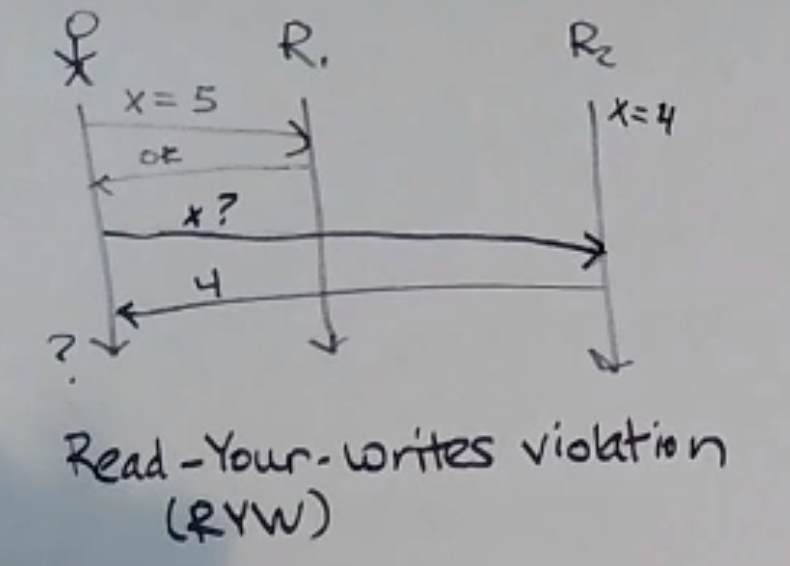 R1
R2
x = 5
x=4
ok
x?
4
?
Read-Your-writes violation
(RYW)